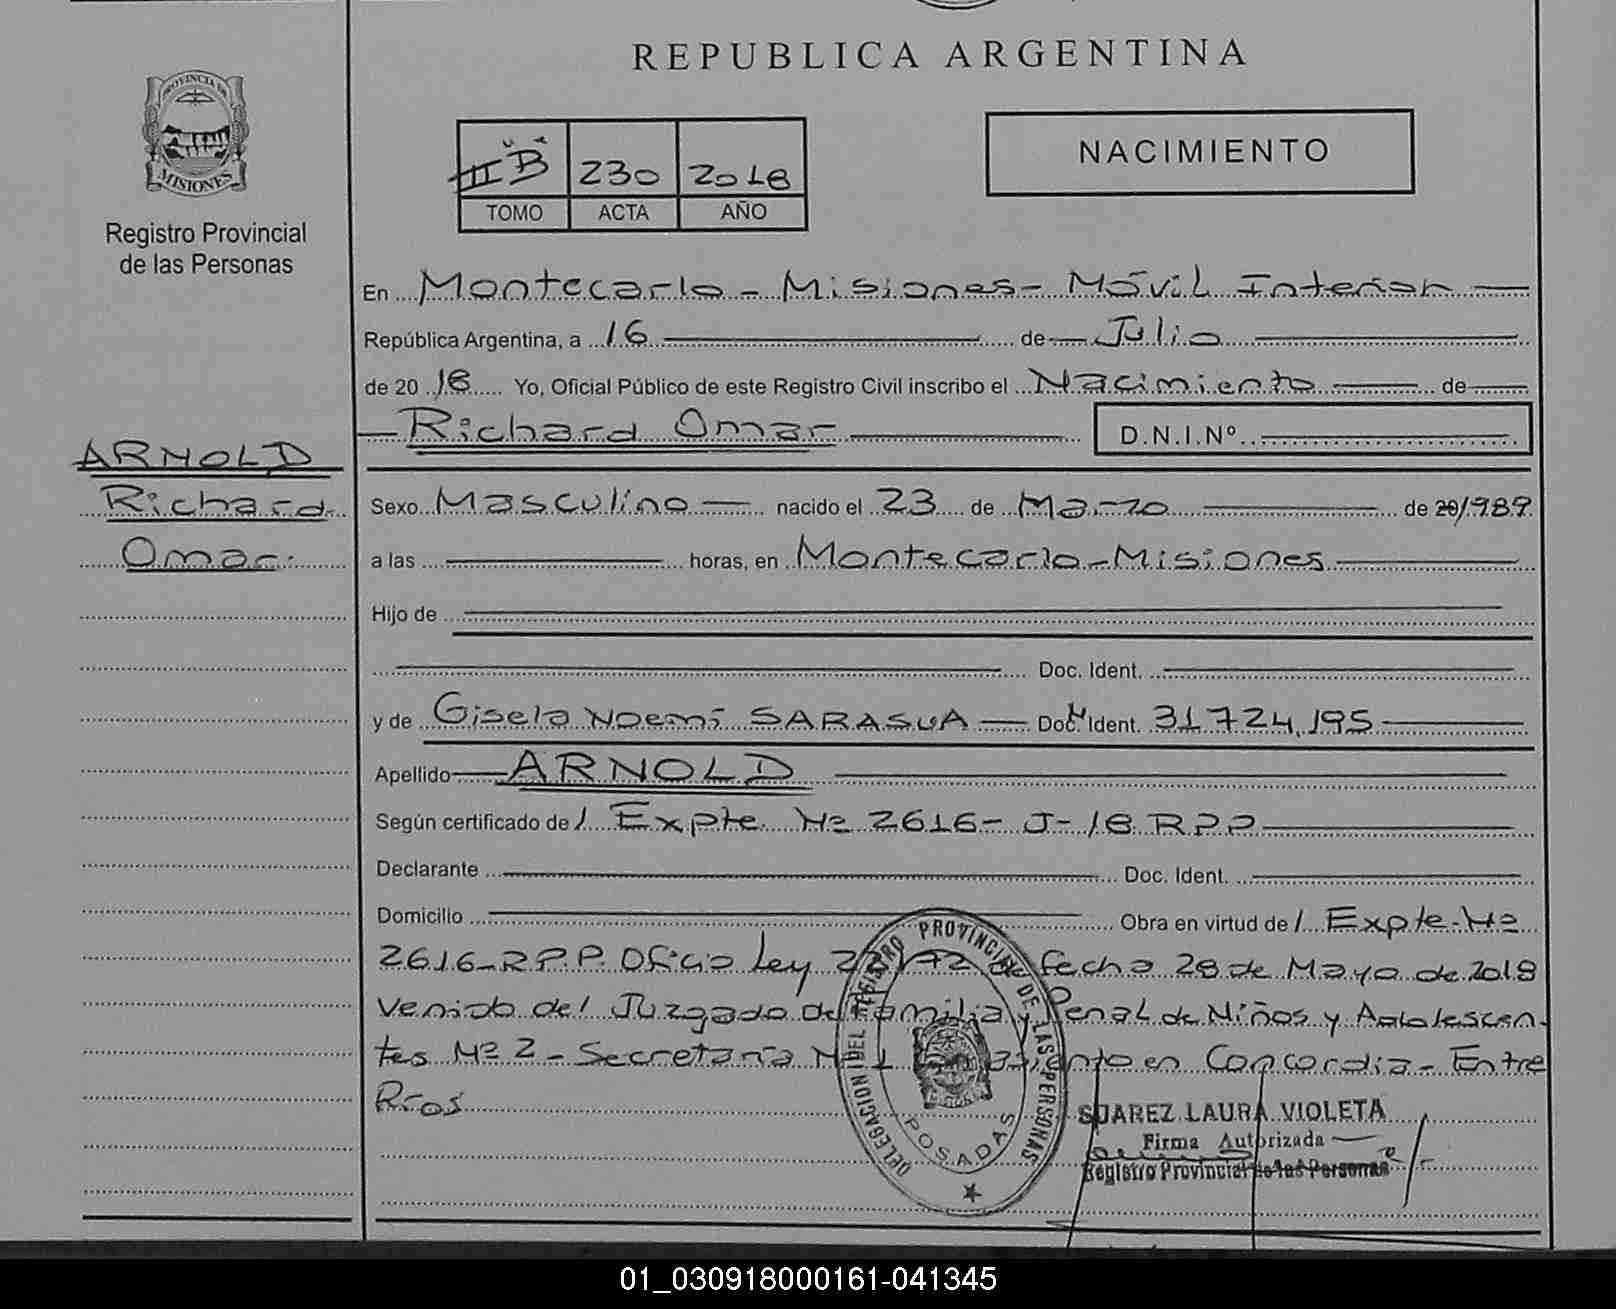 REPUBLICA ARGENTINA
PROVINCIA DE
MISIONES
Registro Provincial
de las Personas
230 2018
TOMO ACTA AÑO
NACIMIENTO
En Montecarlo - Misiones - Móvil Interior
República Argentina, a 16 de Julio
de 20 18 Yo, Oficial Público de este Registro Civil inscribo el Nacimiento de
Richard Omar D.N.I.Nº
ARNOLD
Richard
Omar
Sexo Masculino nacido el 23 de Marzo de 20/1989
a las horas, en Montecarlo - Misiones
Hijo de
Doc. Ident.
y de Gisela Noemi SARASUA Doc. Ident. 31724.195
Apellido ARNOLD
Según certificado de / Expte. Nº 2616- J-18 RPP
Declarante Doc. Ident.
Domicilio Obra en virtud de / Expte. Nº
2616-R.P.P. Oficio Ley de fecha 28 de Mayo de 2018
venido del Juzgado de Familia y Penal de Niños y Adolescen-
tes Nº 2 - Secretaría Nº 1 con asiento en Concordia - Entre
Rios
DELEGACION DEL REGISTRO PROVINCIAL DE LAS PERSONAS
POSADAS
SUAREZ LAURA VIOLETA
Firma Autorizada
Registro Provincial de las Personas
01_030918000161-041345